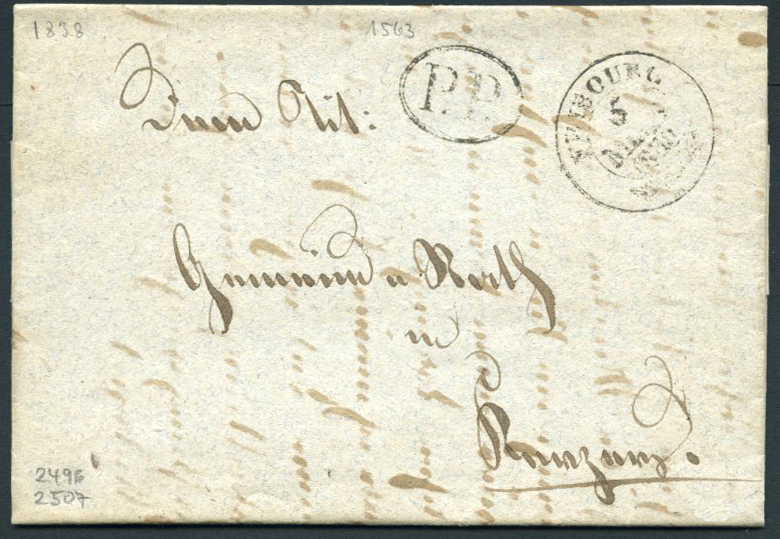 1838 1563
P.P.
FRIBOURG
5
Dem Tit:
Gemeinde Rath
in
Kerzerz.
2496
2507